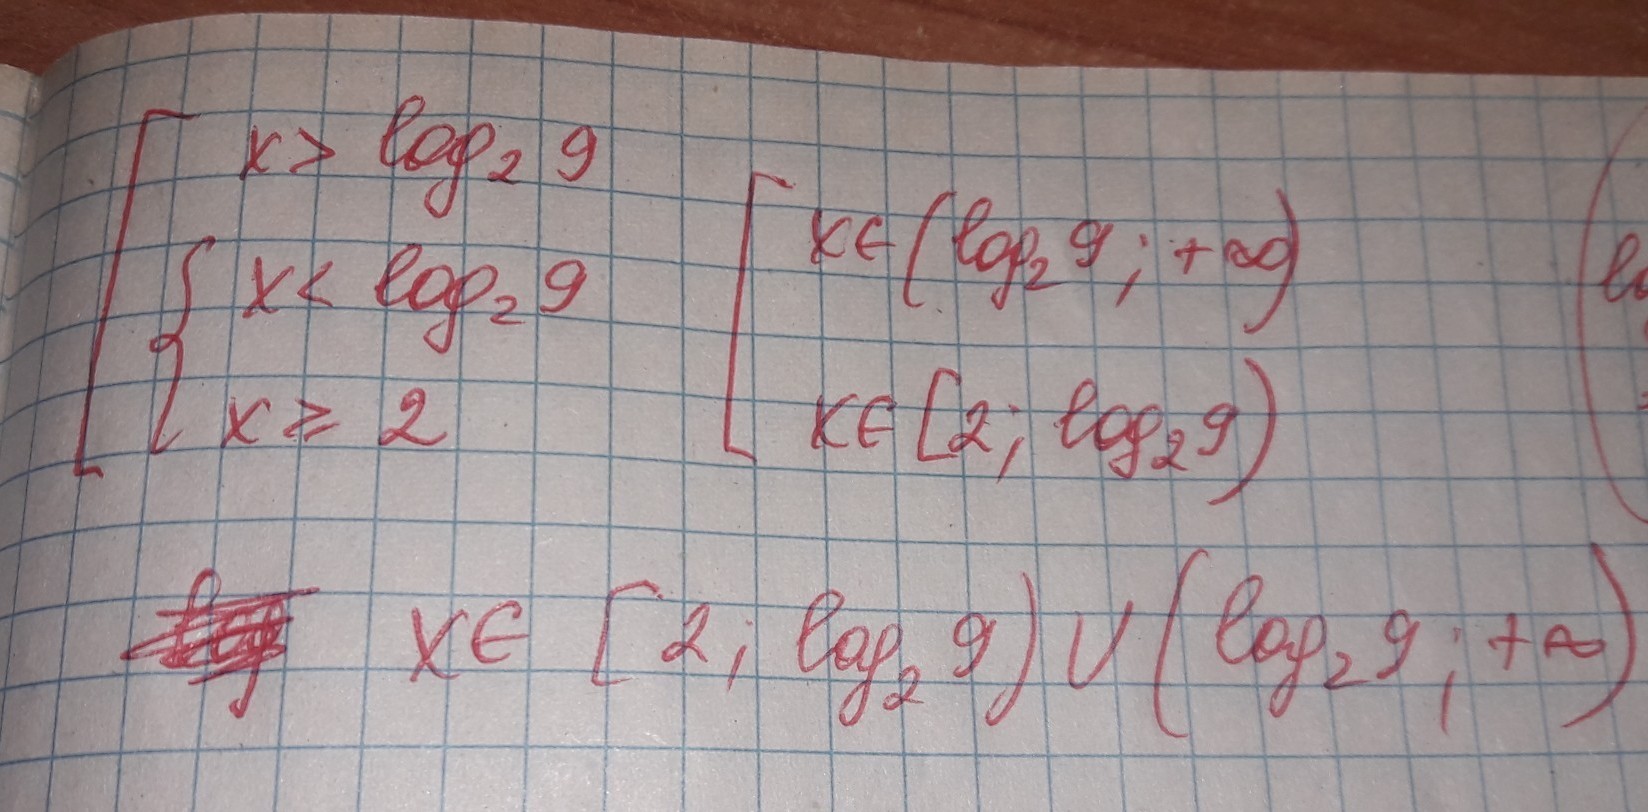 x > log₂ 9
x < log₂ 9
x ≥ 2
x∈(log₂ 9; +∞)
x∈[2; log₂ 9)
x∈ [2; log₂ 9) ∪ (log₂ 9; +∞)